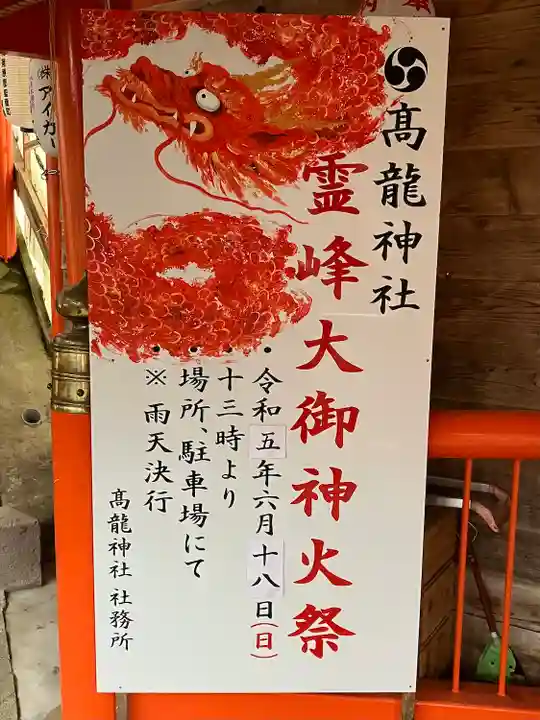 髙龍神社
霊峰大御神火祭
・令和五年六月十八日(日)
・十三時より
・場所、駐車場にて
※雨天決行
髙龍神社 社務所
㈱アイガー